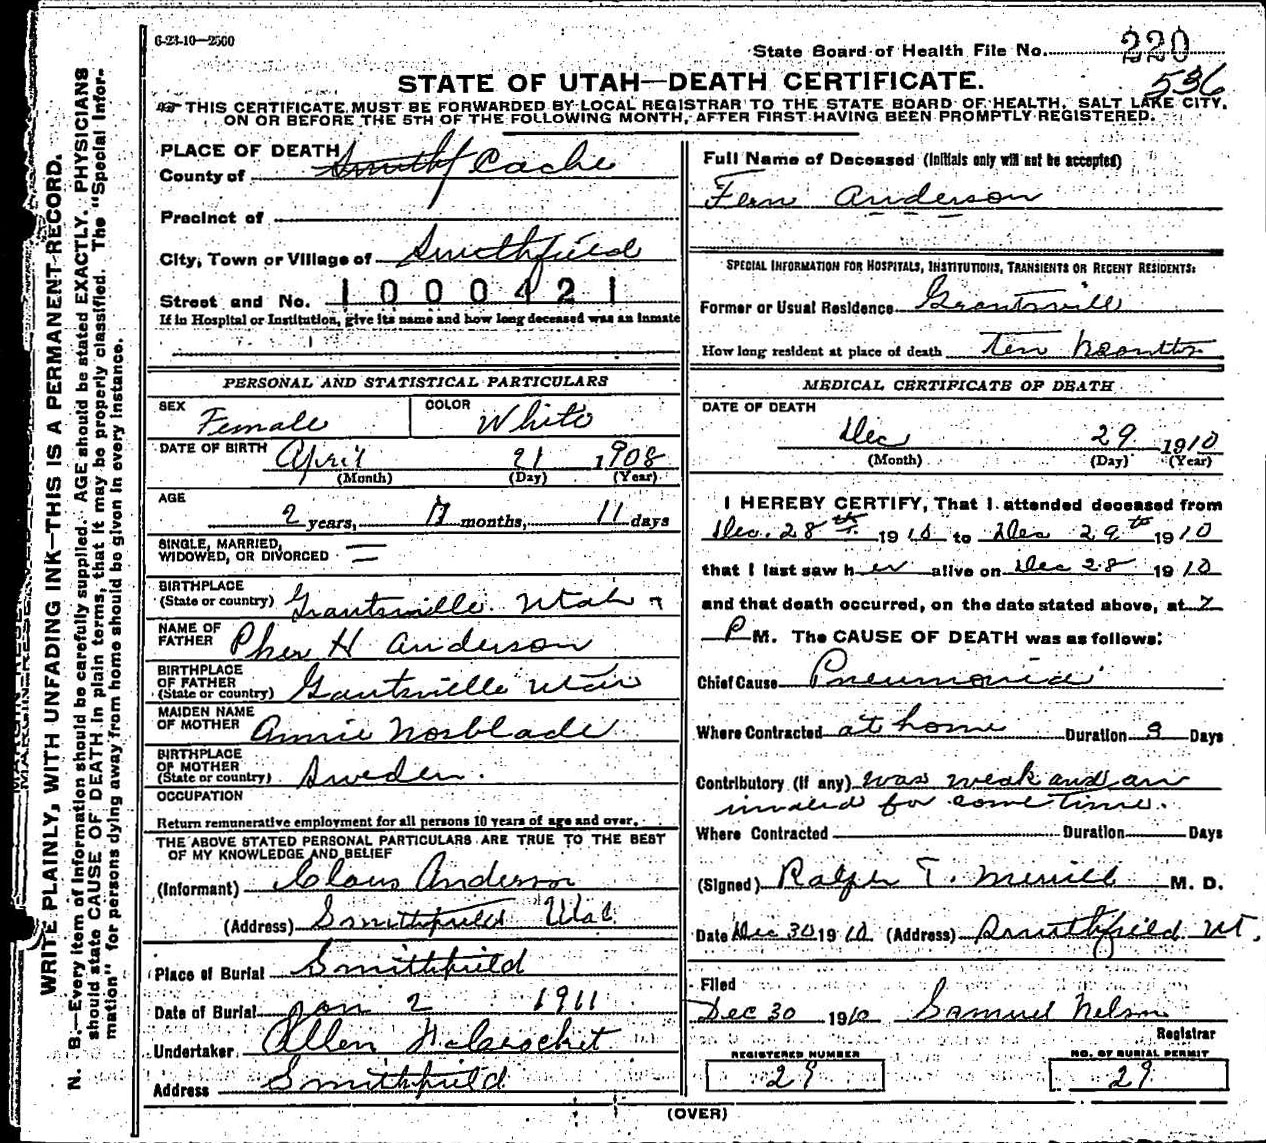 6-23-10—2500
State Board of Health File No. 220
536
STATE OF UTAH—DEATH CERTIFICATE.
THIS CERTIFICATE MUST BE FORWARDED BY LOCAL REGISTRAR TO THE STATE BOARD OF HEALTH, SALT LAKE CITY,
ON OR BEFORE THE 5TH OF THE FOLLOWING MONTH, AFTER FIRST HAVING BEEN PROMPTLY REGISTERED.
WRITE PLAINLY, WITH UNFADING INK—THIS IS A PERMANENT RECORD.
N. B.—Every item of information should be carefully supplied. AGE should be stated EXACTLY. PHYSICIANS
should state CAUSE OF DEATH in plain terms, that it may be properly classified. The "Special Infor-
mation" for persons dying away from home should be given in every instance.
PLACE OF DEATH
County of Smithf Cache
Precinct of
City, Town or Village of Smithfield
Street and No. 1000421
If in Hospital or Institution, give its name and how long deceased was an inmate
PERSONAL AND STATISTICAL PARTICULARS
SEX Female COLOR White
DATE OF BIRTH April 21 1908
(Month) (Day) (Year)
AGE
2 years, months, 11 days
SINGLE, MARRIED,
WIDOWED, OR DIVORCED
BIRTHPLACE
(State or country) Grantsville Utah
NAME OF
FATHER H Anderson
BIRTHPLACE
OF FATHER
(State or country) Gantsville Utah
MAIDEN NAME
OF MOTHER Annie Norblade
BIRTHPLACE
OF MOTHER
(State or country) Sweden.
OCCUPATION
Return remunerative employment for all persons 10 years of age and over.
THE ABOVE STATED PERSONAL PARTICULARS ARE TRUE TO THE BEST
OF MY KNOWLEDGE AND BELIEF
(Informant) Claus Anderson
(Address) Smithfield Utah
Place of Burial Smithfield
Date of Burial Jan 2 1911
Undertaker Allen
Address Smithfield
Full Name of Deceased (Initials only will not be accepted)
Fern Anderson
SPECIAL INFORMATION FOR HOSPITALS, INSTITUTIONS, TRANSIENTS OR RECENT RESIDENTS:
Former or Usual Residence Grantsvill
How long resident at place of death Ten Months
MEDICAL CERTIFICATE OF DEATH
DATE OF DEATH
Dec 29 1910
(Month) (Day) (Year)
I HEREBY CERTIFY, That I attended deceased from
Dec. 28th 1910 to Dec 29th 1910
that I last saw her alive on Dec 28 1910
and that death occurred, on the date stated above, at 7
P M. The CAUSE OF DEATH was as follows:
Chief Cause Pneumonia
Where Contracted at home Duration 3 Days
Contributory (if any) was weak and an
invalid for some time.
Where Contracted Duration Days
(Signed) Ralph T. Merrill M. D.
Date Dec 30 1910 (Address) Smithfield Ut.
Filed
Dec 30 1910 Samuel Nelson
Registrar
REGISTERED NUMBER
29
NO. OF BURIAL PERMIT
29
(OVER)